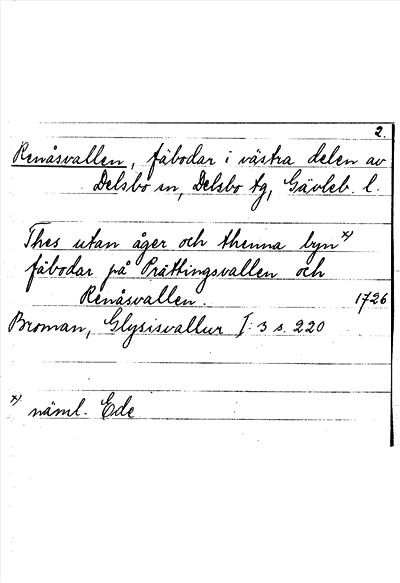 2.
Renåsvallen, fäbodar i västra delen av
Delsbo sn, Delsbo tg, Gävleb. l.
Thes utan åger och thenna byn x)
fäbodar på Prättingsvallen och
Renåsvallen. 1726
Broman, Glysisvallur I: 3 s. 220
x) näml. Ede